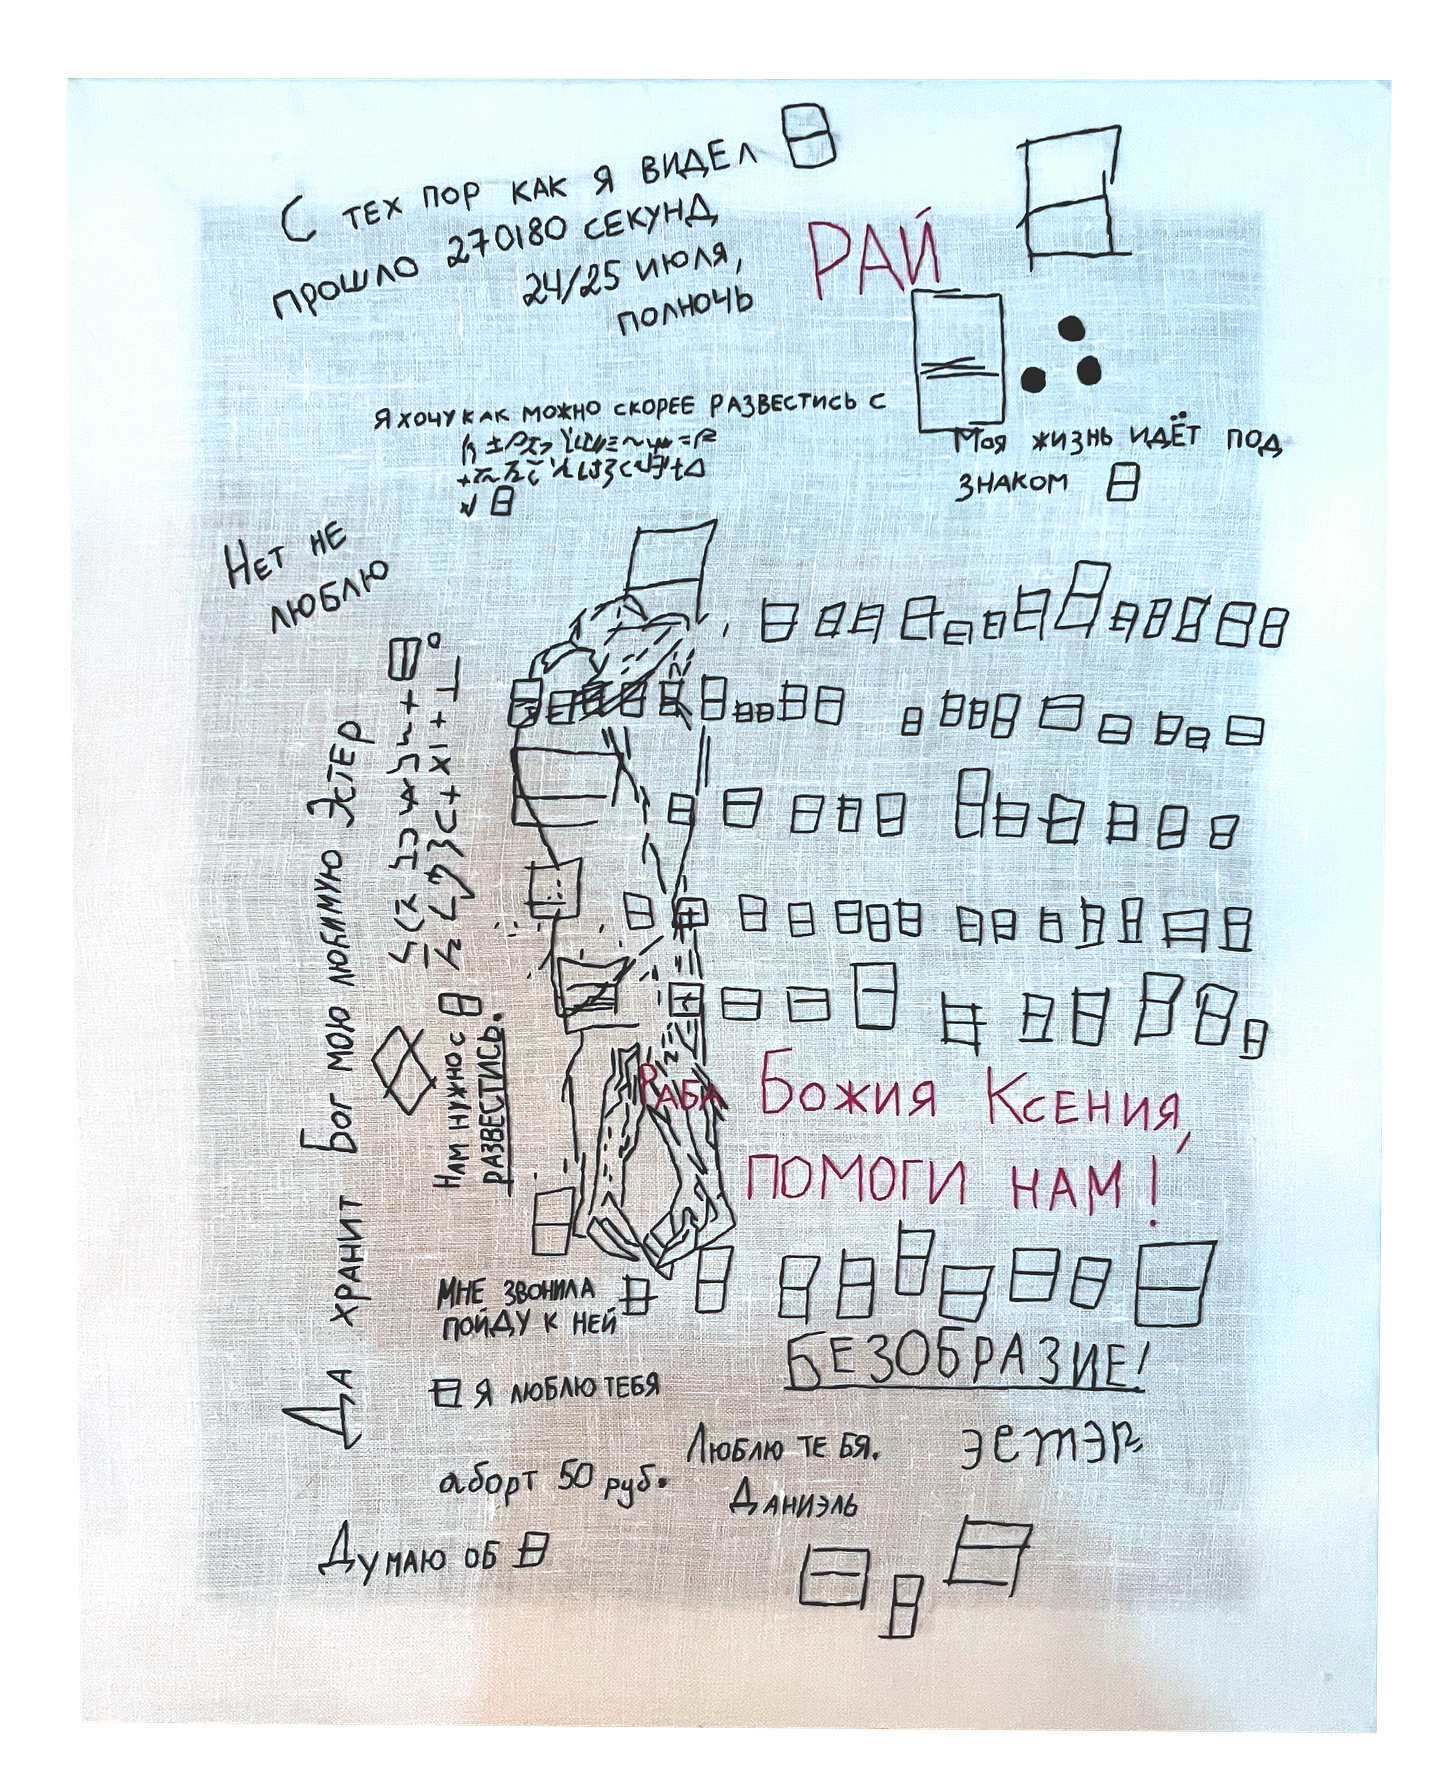 С ТЕХ ПОР КАК Я ВИДЕЛ
ПРОШЛО 270180 СЕКУНД
24/25 ИЮЛЯ,
ПОЛНОЧЬ
РАЙ
Я ХОЧУ КАК МОЖНО СКОРЕЕ РАЗВЕСТИСЬ С
МОЯ ЖИЗНЬ ИДЁТ ПОД
ЗНАКОМ
НЕТ НЕ
ЛЮБЛЮ
ДА ХРАНИТ БОГ МОЮ ЛЮБИМУЮ ЭСТЕР
НАМ НУЖНО С
РАЗВЕСТИСЬ.
РАБА БОЖИЯ КСЕНИЯ,
ПОМОГИ НАМ!
МНЕ ЗВОНИЛА
ПОЙДУ К НЕЙ
БЕЗОБРАЗИЕ!
Я ЛЮБЛЮ ТЕБЯ
ЛЮБЛЮ ТЕБЯ.
ДАНИЭЛЬ
эстэр
аборт 50 руб.
ДУМАЮ ОБ